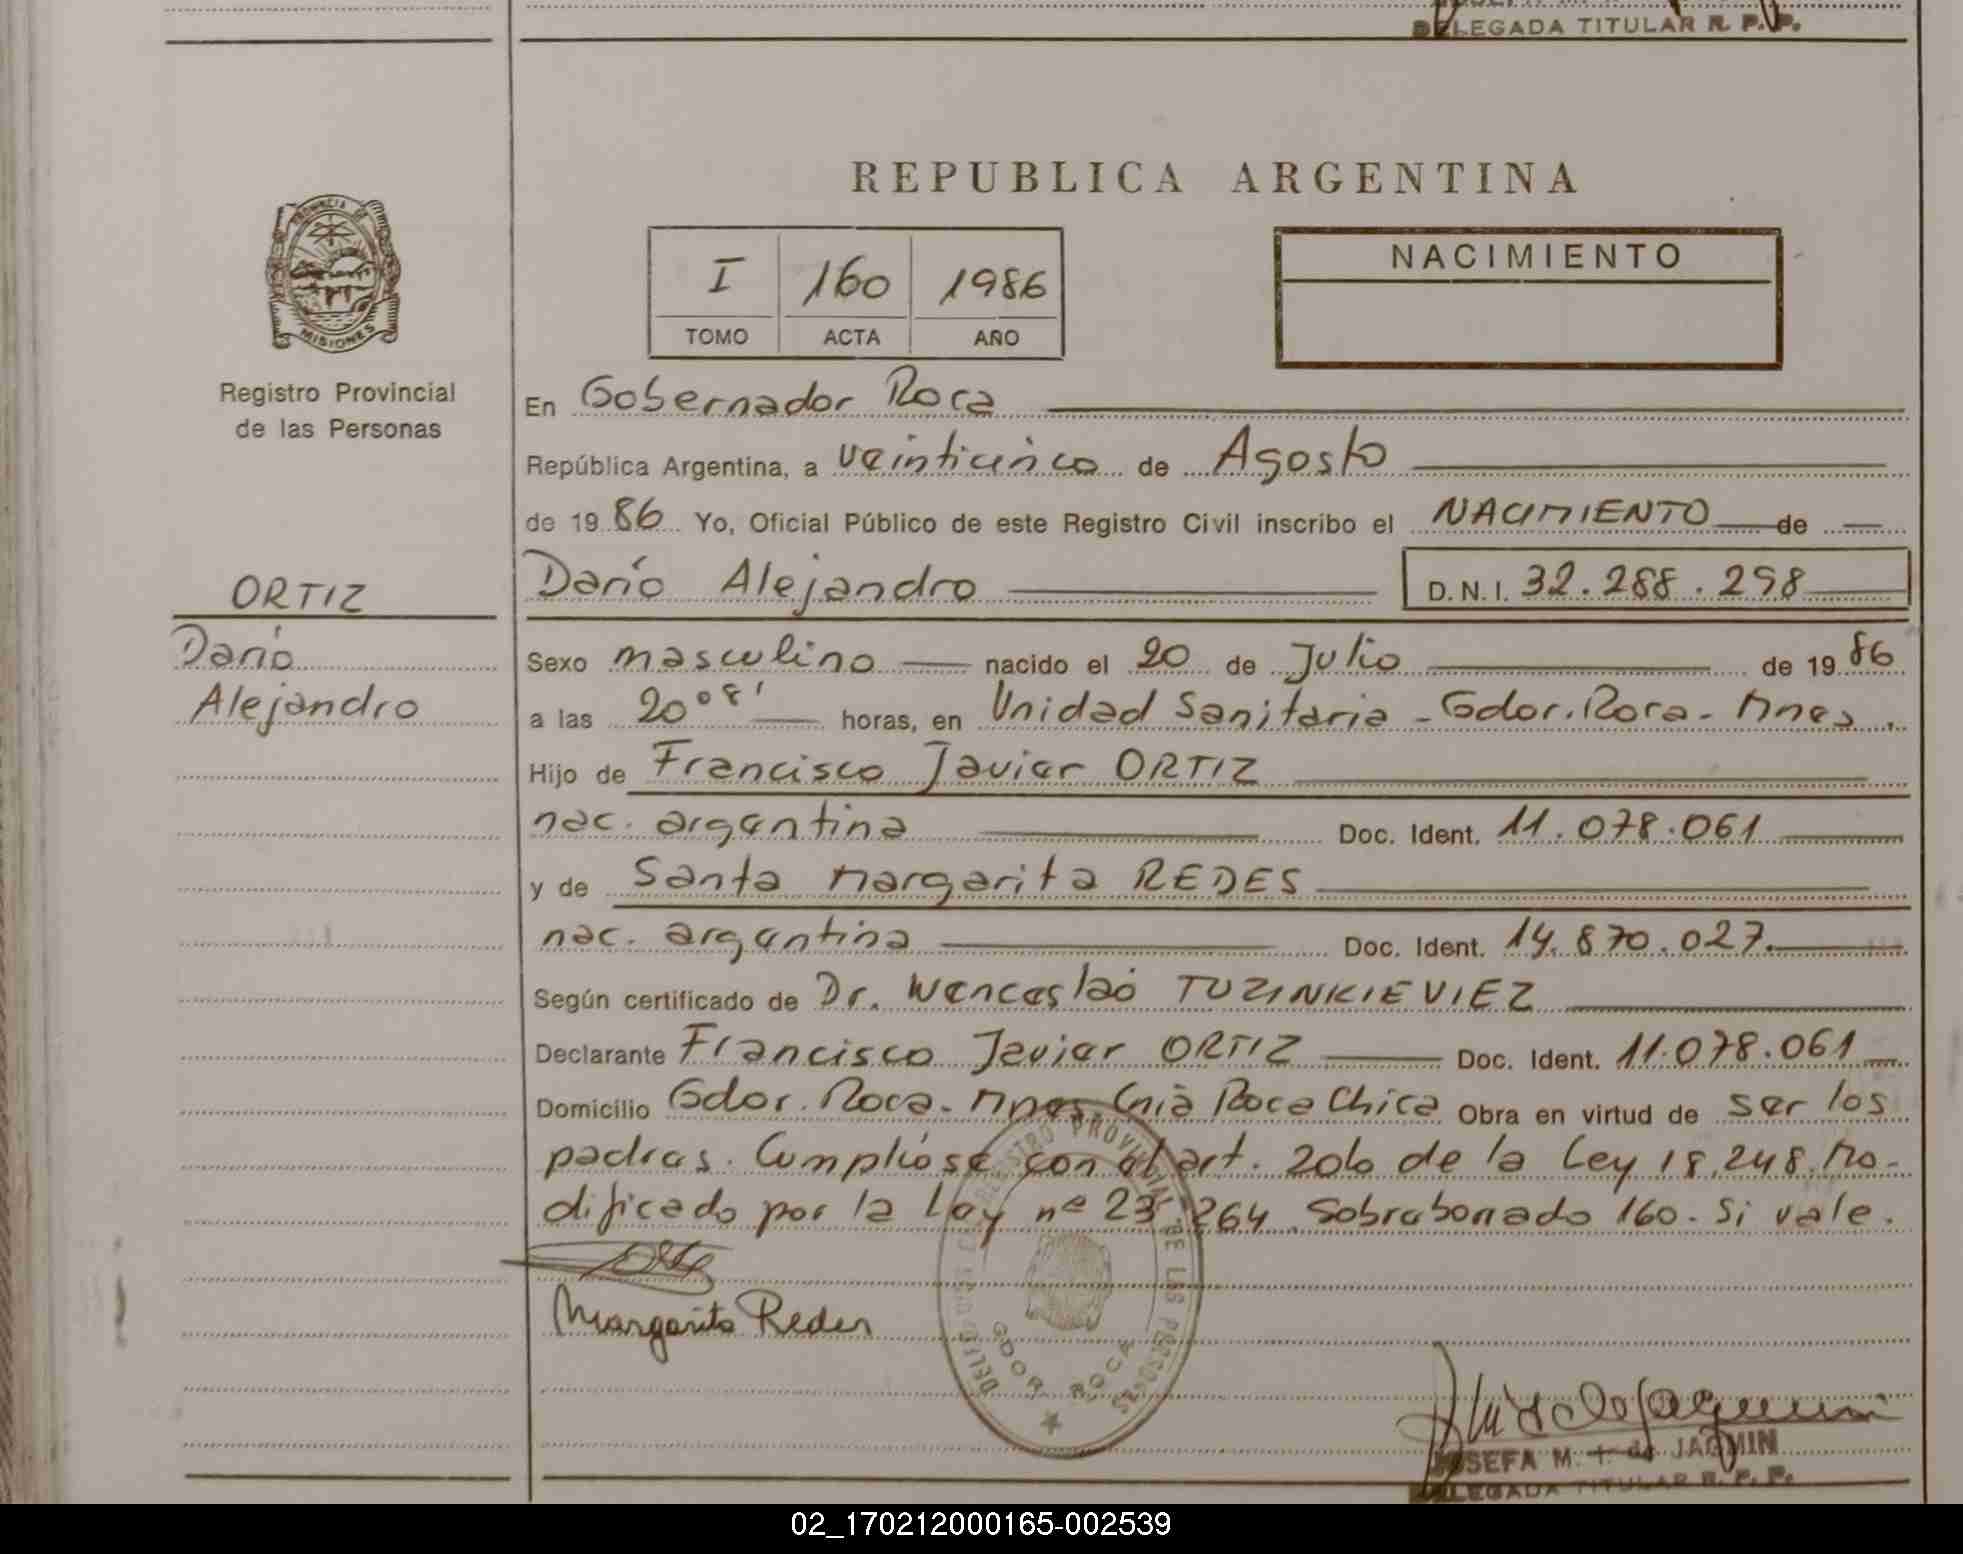 DELEGADA TITULAR R. P. P.
REPUBLICA ARGENTINA
PROVINCIA DE
MISIONES
Registro Provincial
de las Personas
I 160 1986
TOMO ACTA AÑO
NACIMIENTO
En Gobernador Roca
República Argentina, a veinticinco de Agosto
de 19 86 Yo, Oficial Público de este Registro Civil inscribo el NACIMIENTO de
ORTIZ
Darío Alejandro D.N.I. 32.288.298
Darío
Alejandro
Sexo masculino nacido el 20 de Julio de 19 86
a las 20º8' horas, en Unidad Sanitaria - Gdor. Roca - Mnes.
Hijo de Francisco Javier ORTIZ
nac. argentina Doc. Ident. 11.078.061
y de Santa Margarita REDES
nac. argentina Doc. Ident. 14.870.027.
Según certificado de Dr. Wenceslao TUZINKIEVIEZ
Declarante Francisco Javier ORTIZ Doc. Ident. 11.078.061
Domicilio Gdor. Roca - Mnes. Cnia Roca Chica Obra en virtud de ser los
padres. Cumplióse con el art. 20b de la Ley 18.248. Mo-
dificado por la Ley nº 23.264. Sobreborrado 160. Si vale.
Margarita Redes
REGISTRO PROVINCIAL DE LAS PERSONAS
GDOR ROCA
JOSEFA M. de JAQMIN
DELEGADA TITULAR R. P. P.
02_170212000165-002539